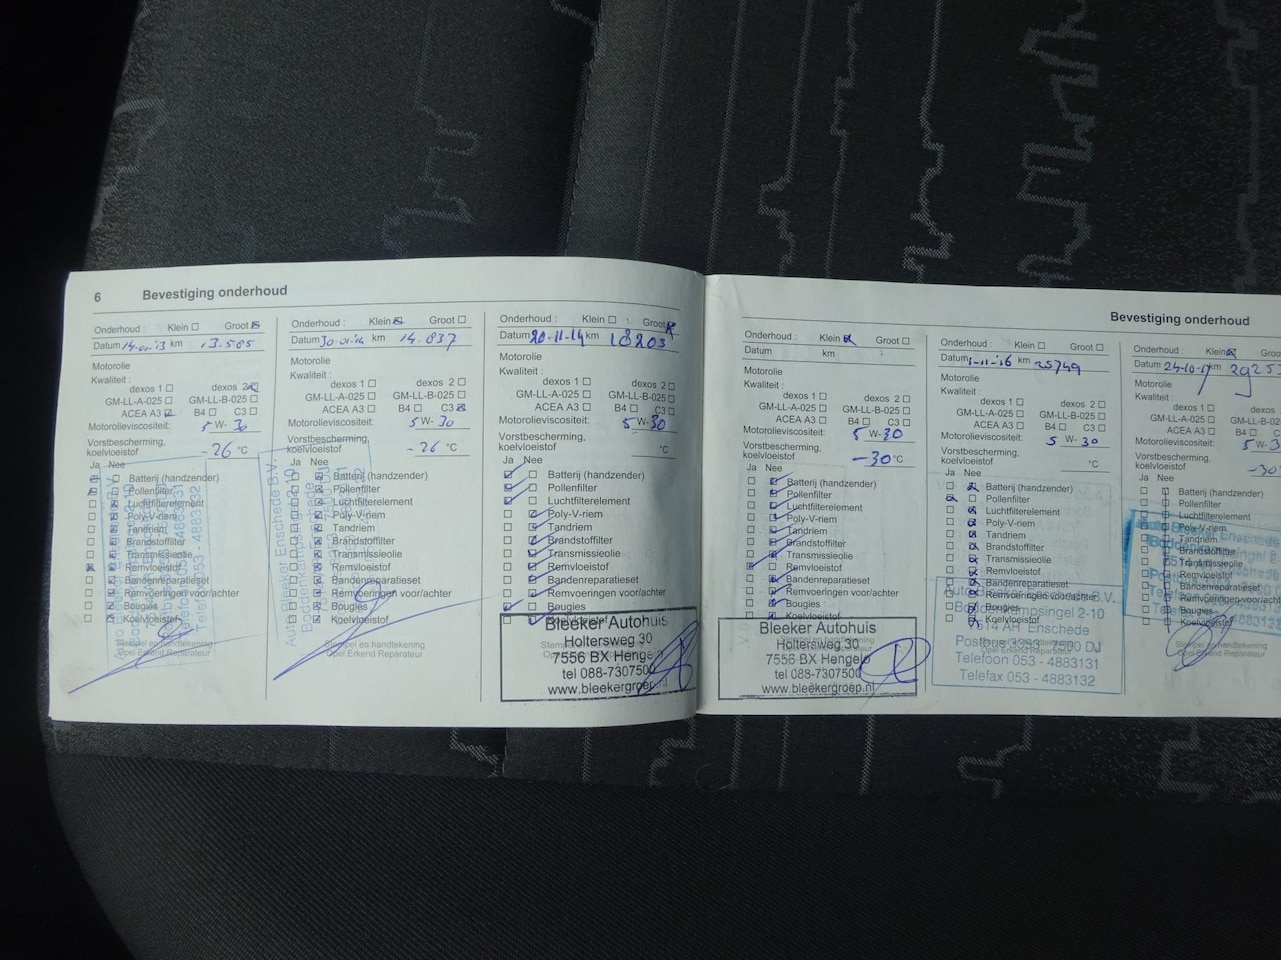 6 Bevestiging onderhoud
Onderhoud : Klein Groot
Datum 14-01-'13 km 13.585
Motorolie
Kwaliteit :
dexos 1 dexos 2
GM-LL-A-025 GM-LL-B-025
ACEA A3 B4 C3
Motorolieviscositeit: 5 W- 30
Vorstbescherming,
koelvloeistof -26 °C
Ja Nee
Batterij (handzender)
Pollenfilter
Luchtfilterelement
Poly-V-riem
Tandriem
Brandstoffilter
Transmissieolie
Remvloeistof
Bandenreparatieset
Remvoeringen voor/achter
Bougies
Koelvloeistof
Stempel en handtekening
Opel Erkend Reparateur
Telefoon 053 - 4883131
Telefax 053 - 4883132
Onderhoud : Klein Groot
Datum 30-01-'14 km 14.837
Motorolie
Kwaliteit :
dexos 1 dexos 2
GM-LL-A-025 GM-LL-B-025
ACEA A3 B4 C3
Motorolieviscositeit: 5 W- 30
Vorstbescherming,
koelvloeistof -26 °C
Ja Nee
Batterij (handzender)
Pollenfilter
Luchtfilterelement
Poly-V-riem
Tandriem
Brandstoffilter
Transmissieolie
Remvloeistof
Bandenreparatieset
Remvoeringen voor/achter
Bougies
Koelvloeistof
Stempel en handtekening
Opel Erkend Reparateur
Onderhoud : Klein Groot
Datum 20-11-14 km 18203
Motorolie
Kwaliteit :
dexos 1 dexos 2
GM-LL-A-025 GM-LL-B-025
ACEA A3 B4 C3
Motorolieviscositeit: 5 W-30
Vorstbescherming,
koelvloeistof °C
Ja Nee
Batterij (handzender)
Pollenfilter
Luchtfilterelement
Poly-V-riem
Tandriem
Brandstoffilter
Transmissieolie
Remvloeistof
Bandenreparatieset
Remvoeringen voor/achter
Bougies
Koelvloeistof
Bleeker Autohuis
Holtersweg 30
7556 BX Hengelo
tel 088-7307500
www.bleekergroep.nl
Bevestiging onderhoud
Onderhoud : Klein Groot
Datum km
Motorolie
Kwaliteit :
dexos 1 dexos 2
GM-LL-A-025 GM-LL-B-025
ACEA A3 B4 C3
Motorolieviscositeit: 5 W-30
Vorstbescherming,
koelvloeistof -30 °C
Ja Nee
Batterij (handzender)
Pollenfilter
Luchtfilterelement
Poly-V-riem
Tandriem
Brandstoffilter
Transmissieolie
Remvloeistof
Bandenreparatieset
Remvoeringen voor/achter
Bougies
Koelvloeistof
Bleeker Autohuis
Holtersweg 30
7556 BX Hengelo
tel 088-7307500
www.bleekergroep.nl
Onderhoud : Klein Groot
Datum 1-11-'16 km 25749
Motorolie
Kwaliteit :
dexos 1 dexos 2
GM-LL-A-025 GM-LL-B-025
ACEA A3 B4 C3
Motorolieviscositeit: 5 W- 30
Vorstbescherming,
koelvloeistof °C
Ja Nee
Batterij (handzender)
Pollenfilter
Luchtfilterelement
Poly-V-riem
Tandriem
Brandstoffilter
Transmissieolie
Remvloeistof
Bandenreparatieset
Remvoeringen voor/achter
Bougies
Koelvloeistof
7514 AR Enschede
7500 DJ
Telefoon 053 - 4883131
Telefax 053 - 4883132
Onderhoud : Klein
Datum 24-10-17 km
Motorolie
Kwaliteit :
dexos 1
GM-LL-A-025
ACEA A3 B4
Motorolieviscositeit: 5 W-
Vorstbescherming,
koelvloeistof -30
Ja Nee
Batterij (handzender)
Pollenfilter
Luchtfilterelement
Poly-V-riem
Tandriem
Brandstoffilter
Transmissieolie
Remvloeistof
Bandenreparatieset
Remvoeringen voor/achter
Bougies
Koelvloeistof
Stempel en handtekening
Opel Erkend Reparateur